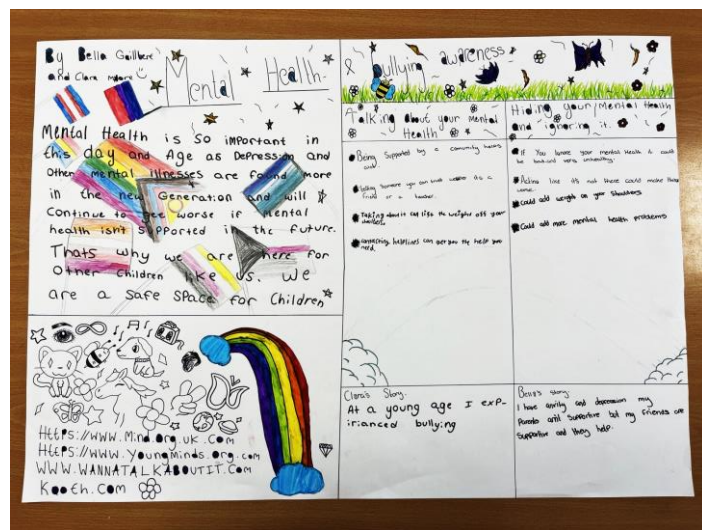 By Bella
and Clara
Mental Health
& Bullying awareness
Mental Health is so important in
this day and Age as Depression and
Other mental illnesses are found more
in the new Generation and will
Continue to get worse if mental
health isn't supported in the future.
Thats why we are here for
Other Children like us. We
are a safe space for children
Https://www.Mind.org.uk.com
Https://www.Youngminds.org.com
WWW.WANNATALKABOUTIT.Com
Kooth.com
Talking about your mental
Health
Being supported by a
Telling someone you can trust
friend or a teacher.
Talking about it can lift the weight off your
Contacting helplines can get you the help you
need.
Hiding your mental Health
and ignoring it.
If You ignore your mental Health it could
be and very unhealthy.
Acting like it's not there could make things
Could add weight on your shoulders
Could add more mental health problems
Clara's Story.
At a young age I exp-
irianced bullying
Bella's Story.
I have anxiety and depression my
Parents supportive but my friends are
supportive and they help.